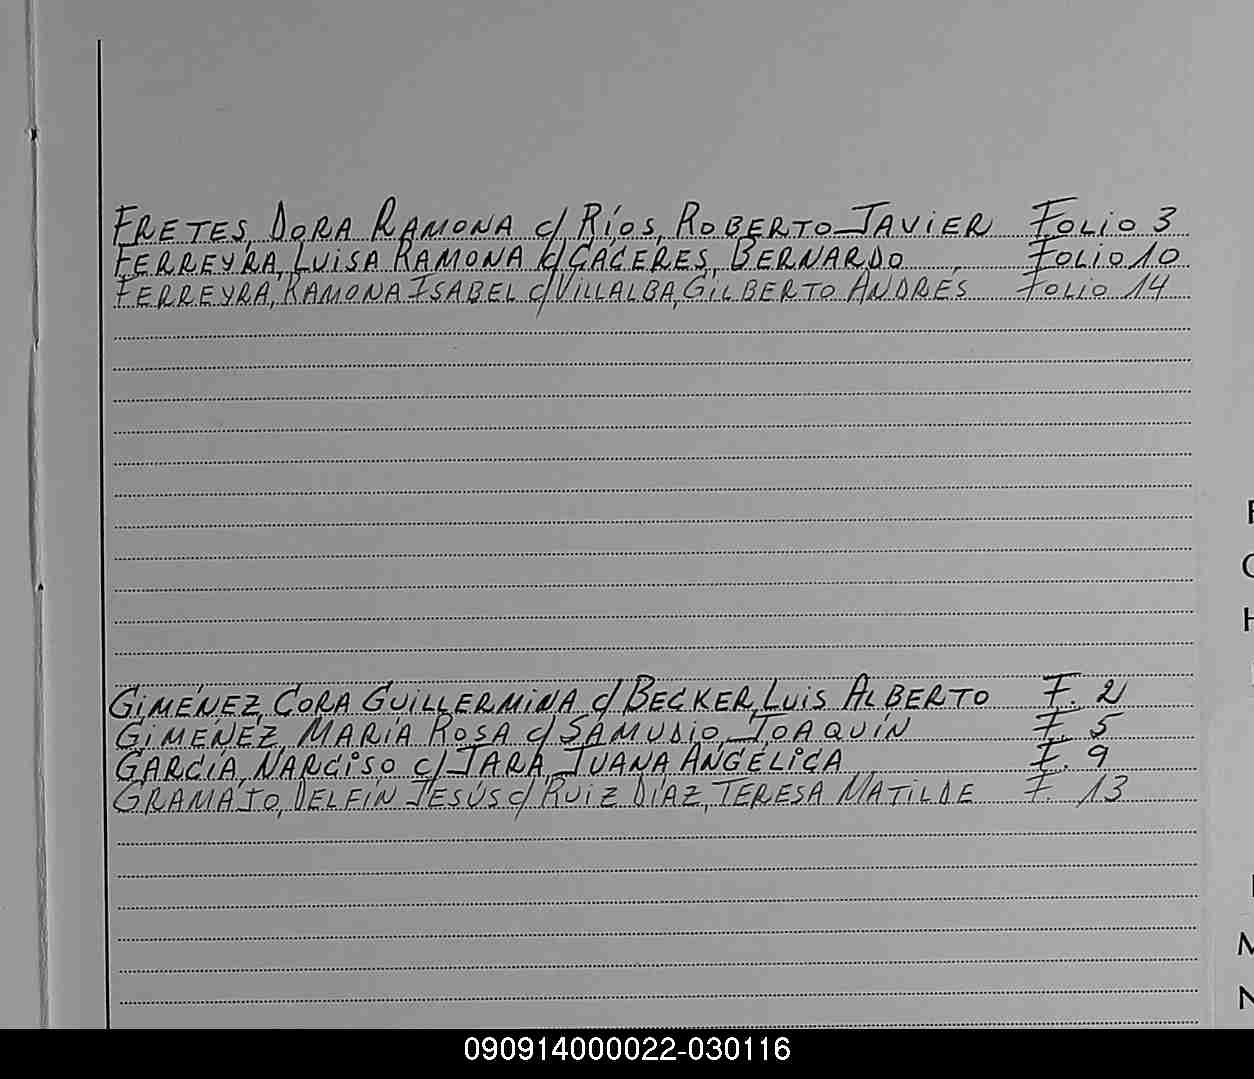 FRETES, DORA RAMONA c/ RÍOS, ROBERTO JAVIER FOLIO 3
FERREYRA, LUISA RAMONA c/ CÁCERES, BERNARDO FOLIO 10
FERREYRA, RAMONA ISABEL c/ VILLALBA, GILBERTO ANDRES FOLIO 14
GIMÉNEZ, CORA GUILLERMINA c/ BECKER, LUIS ALBERTO F. 2
GIMÉNEZ, MARÍA ROSA c/ SAMUDIO, JOAQUÍN F. 5
GARCÍA, NARCISO c/ JARA, JUANA ANGÉLICA F. 9
GRAMAJO, DELFÍN JESÚS c/ RUIZ DÍAZ, TERESA MATILDE F. 13
H
M
N
090914000022-030116